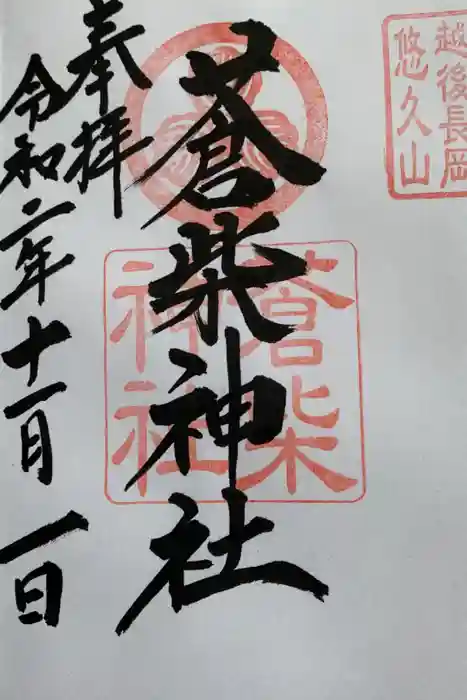 越後長岡
悠久山
蒼柴神社
蒼柴
神社
奉拝
令和二年十一月一日